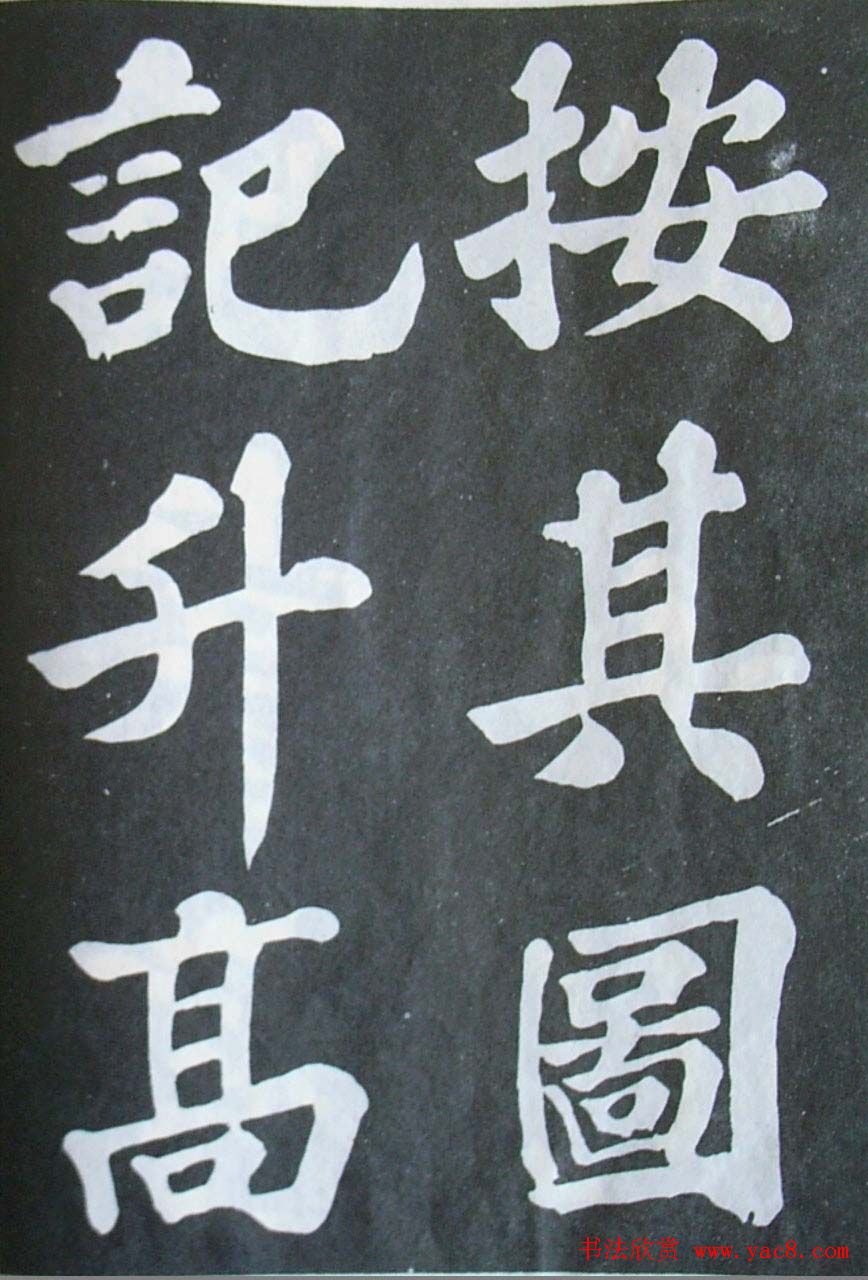 按其圖
記升髙
书法欣赏 www.yac8.com